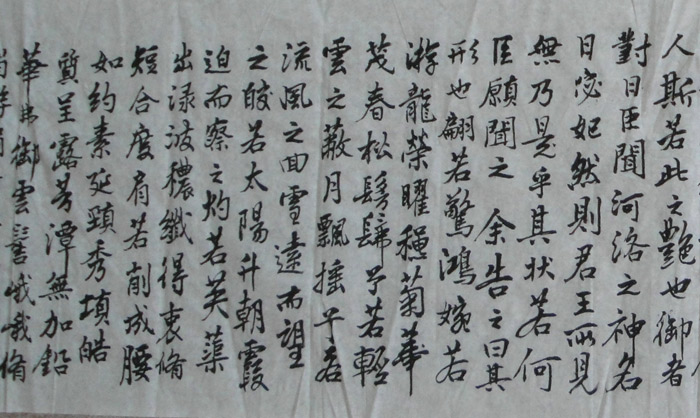 人斯若此之艷也御者
對曰臣聞河洛之神名
曰宓妃然則君王所見
無乃是乎其狀若何
臣願聞之余告之曰其
形也翩若驚鴻婉若
游龍榮曜穐菊華
茂春松髣髴兮若輕
雲之蔽月飄搖兮若
流風之回雪遠而望
之皎若太陽升朝霞
迫而察之灼若芙蕖
出渌波穠纖得衷脩
短合度肩若削成腰
如約素延頸秀項皓
質呈露芳澤無加鉛
華弗御雲髻峨峨脩